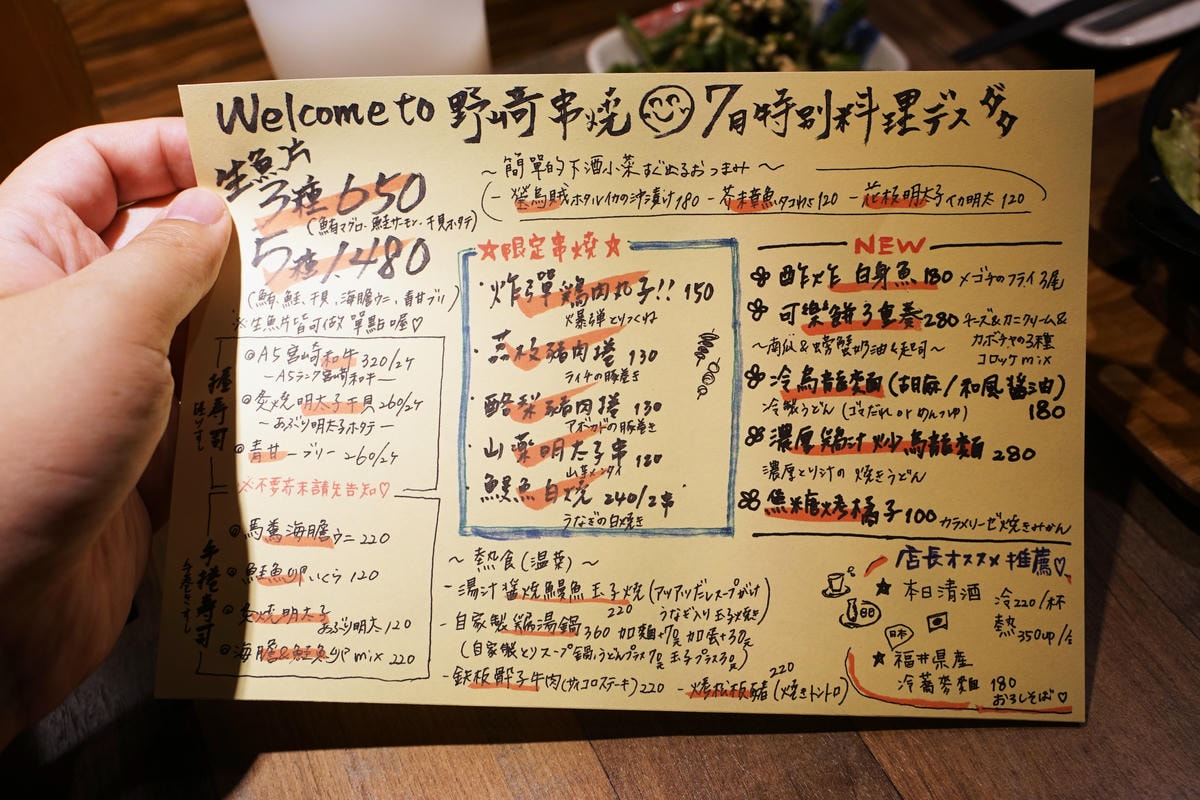 Welcome to 野崎串燒 7月特別料理デスダダ
生魚片
3種 650
(鮪マグロ、鮭サーモン、干貝ホタテ)
5種 1,480
(鮪、鮭、干貝、海膽ウニ、青甘ブリ)
※生魚片皆可做單點喔♡
握壽司
握りずし
◎A5宮崎和牛 320/2个
—A5ランク宮崎和牛—
◎炙燒明太子干貝 260/2个
—あぶり明太子ホタテ—
◎青甘—ブリー 260/2个
※不要芥末請先告知♡
手捲壽司
手巻きずし
◎馬糞海膽ウニ 220
◎鮭魚卵いくら 120
◎炙燒明太子
あぶり明太 120
◎海膽&鮭魚卵 mix 220
~簡單的下酒小菜すぐ出るおつまみ~
- 螢烏賊ホタルイカの沖漬け 180 - 芥末章魚タコわさ 120 - 花枝明太子イカ明太 120
☆限定串燒☆
・炸彈鶏肉丸子!! 150
爆弾とりつくね
・荔枝豬肉捲 130
ライチの豚巻き
・酪梨豬肉捲 130
アボカドの豚巻き
・山藥明太子串 180
山芋メンタイ
・鰻魚白燒 240/2串
うなぎの白焼き
~熱食(温菜)~
- 湯汁醬燒鰻魚玉子燒(アツアツだしスープがけ
220 うなぎ入り玉子焼き)
- 自家製鶏湯鍋 360 加麵+70元 加蛋+30元
(自家製とりスープ鍋、うどんプラス70元 玉子プラス30元)
- 鉄板骰子牛肉(サイコロステーキ) 220 - 烤松板豬(焼きトントロ) 220
NEW
酥炸白身魚 180 メゴチのフライ3尾
可樂餅3重奏 280 チーズ&カニクリーム&
~南瓜&螃蟹奶油&起司~ カボチャの3種
コロッケmix
冷烏龍麵(胡麻/和風醬油)
冷製うどん(ゴマだれ or めんつゆ) 180
濃厚鶏汁炒烏龍麵 280
濃厚とり汁の焼きうどん
焦糖烤橘子 100 カラメリーゼ焼きみかん
店長オススメ推薦♡
★本日清酒 冷220/杯
熱350up/合
日本
★福井県産
冷蕎麥麵 180
おろしそば♡